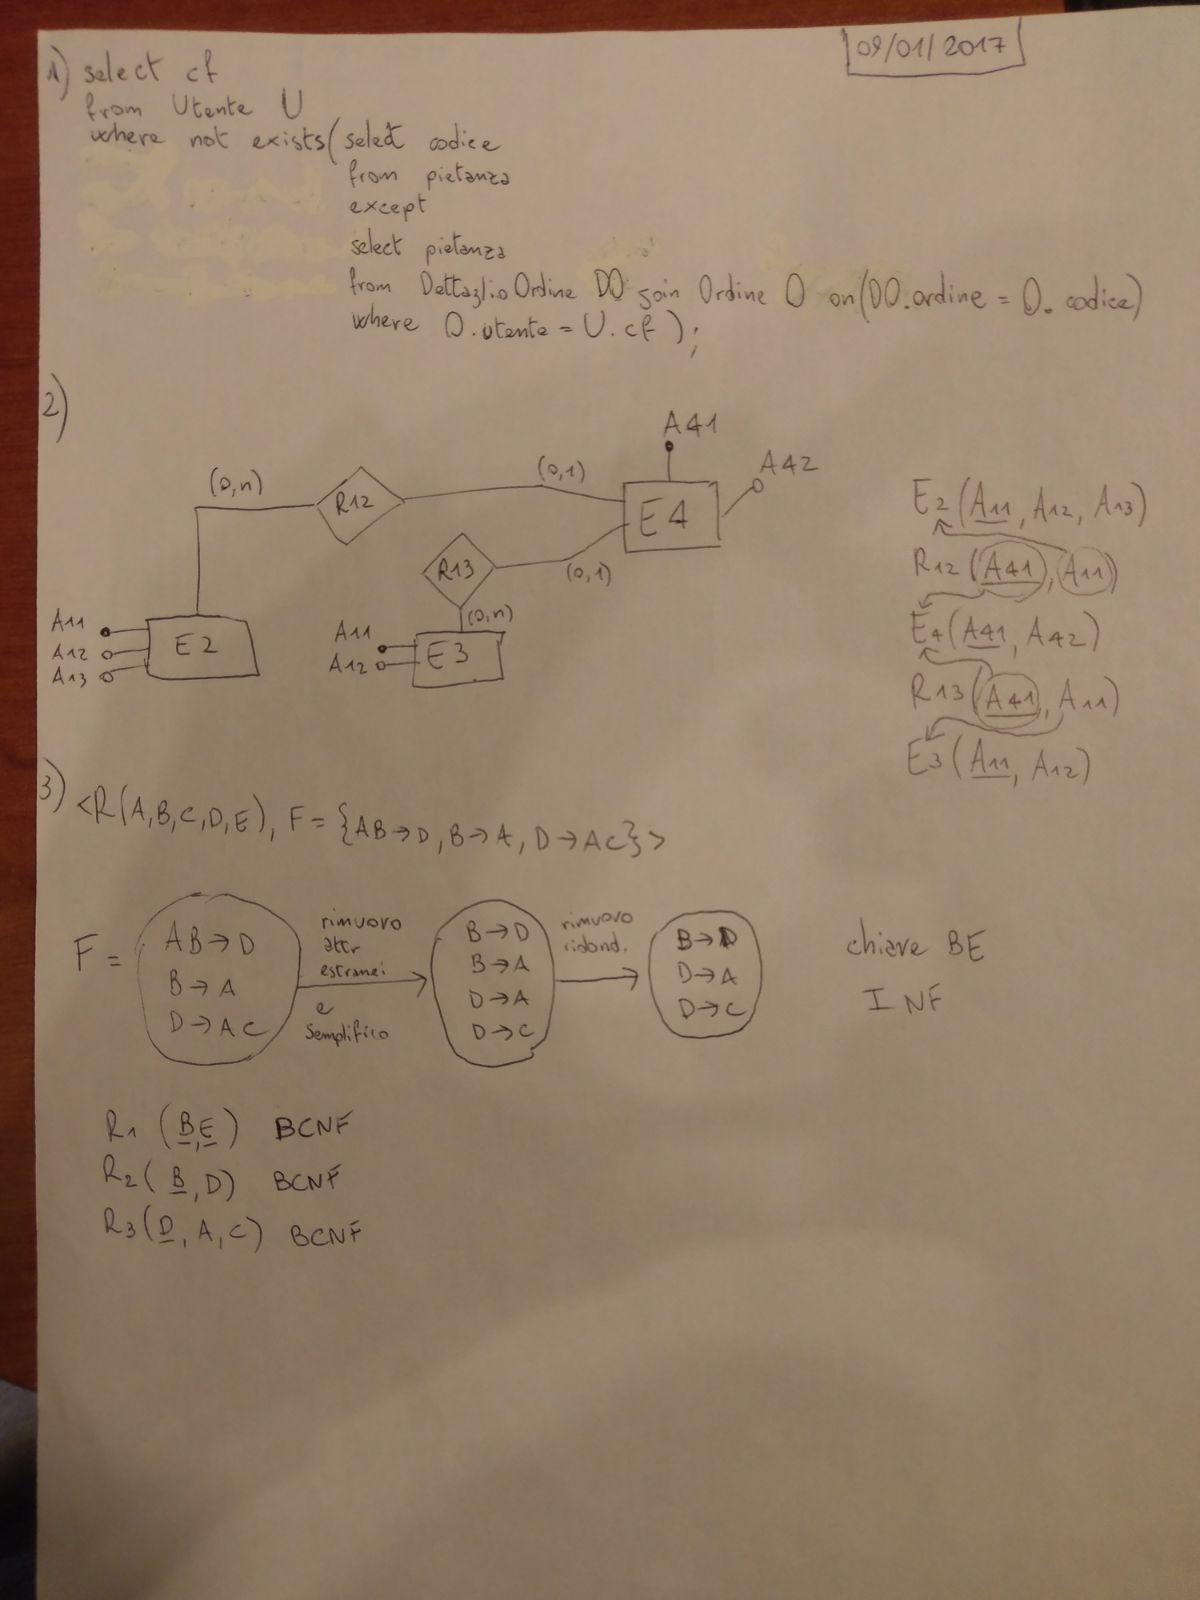 09/01/2017
1) select cf
from Utente U
where not exists(select codice
from pietanza
except
select pietanza
from DettaglioOrdine DO join Ordine O on(DO.ordine = O.codice)
where O.utente = U.cf );
2)
A41
A42
(0,n)
R12
(0,1)
E4
R13
(0,1)
(0,n)
A11
A12
A13
E2
A11
A12
E3
E2(A11, A12, A13)
R12(A41, A11)
E4(A41, A42)
R13(A41, A11)
E3(A11, A12)
3) <R(A,B,C,D,E), F={AB→D, B→A, D→AC}>
F =
AB→D
B→A
D→AC
rimuovo
attr
estranei
e
semplifico
B→D
B→A
D→A
D→C
rimuovo
ridond.
B→D
D→A
D→C
chiave BE
I NF
R1 (B,E) BCNF
R2( B,D) BCNF
R3(D, A, C) BCNF